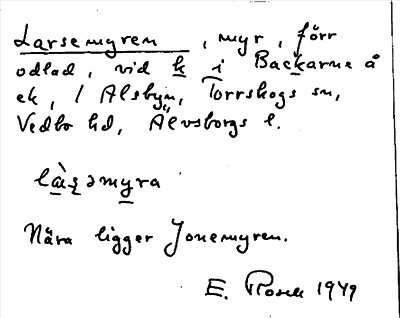 Larsemyren, myr, förr
odlad, vid k i Backarna å
ek, / Alsbyn, Torrskogs sn,
Vedbo hd, Älvsborgs l.
Nära ligger Jonemyren.
E. Rosell 1949